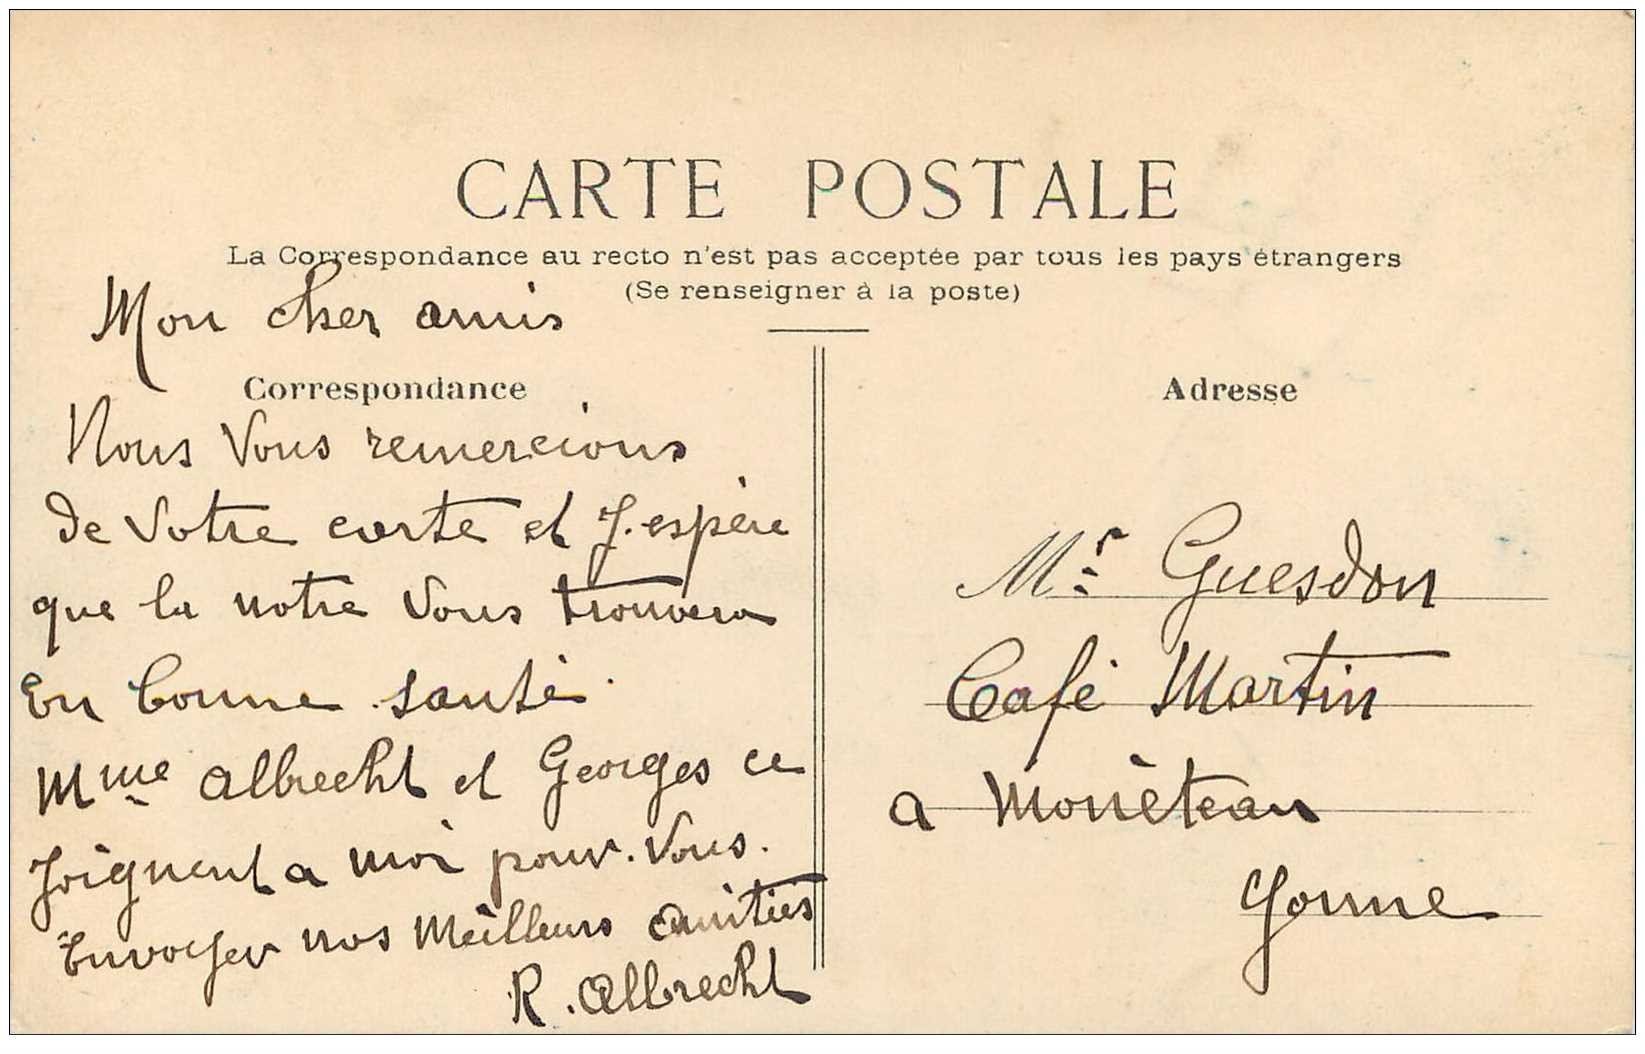 CARTE POSTALE
La Correspondance au recto n'est pas acceptée par tous les pays étrangers
(Se renseigner à la poste)
Mon cher amis
Correspondance
Nous Vous remercions
de Votre carte et J. espère
que la notre Vous trouvera
En bonne santé.
Mme Albrecht et Georges ce
Joignent a moi pour. Vous.
Envoyer nos Meilleurs amitiés
R. Albrecht
Adresse
Mr Guesdon
Café Martin
a Monèteau
Yonne